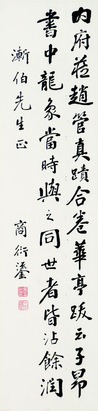 内府藏趙管真蹟合卷華亭跋云子昂
書中龍象當時與之同世者皆沾餘潤
漸伯先生正
商衍鎏